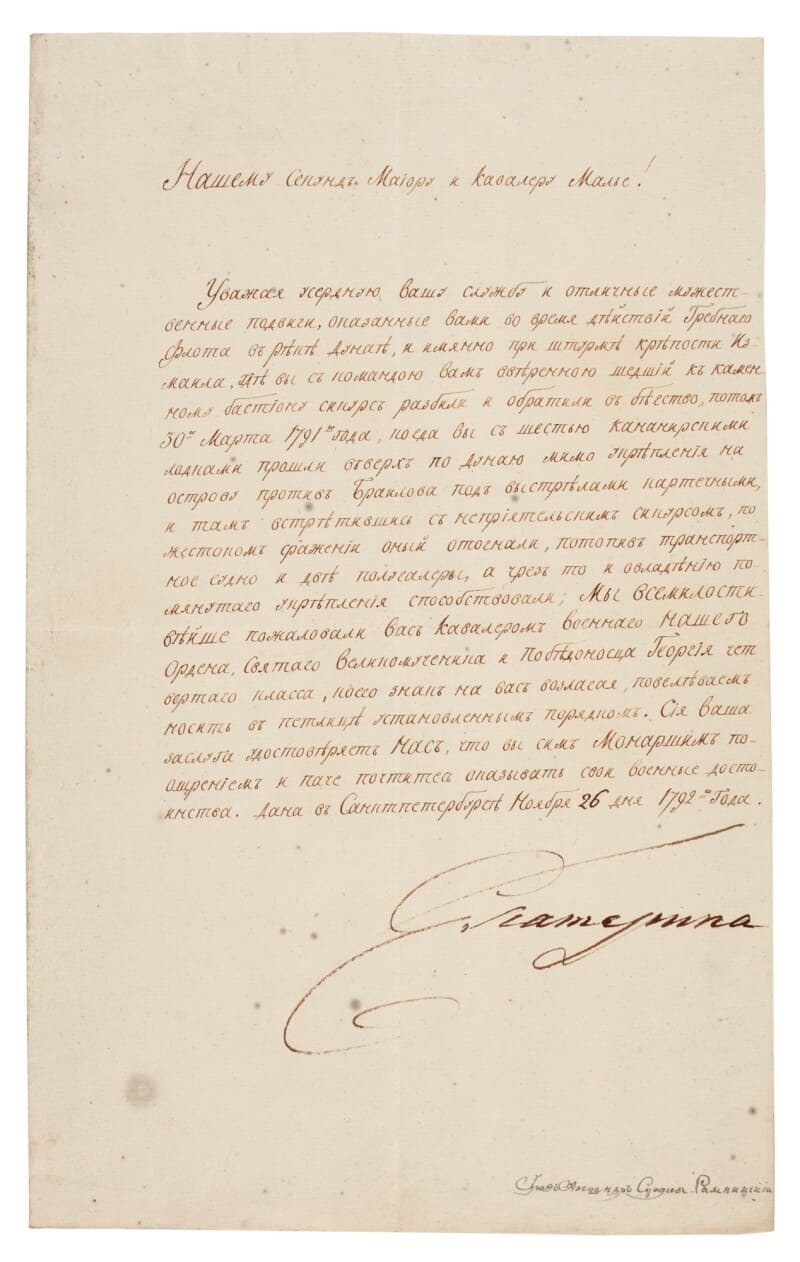 Нашему Секундъ-Маіору и Кавалеру Малье!
Уважая усердную вашу службу и отличные мужест-
венные подвиги, оказанные вами во время дѣйствій Гребнаго
флота въ рѣкѣ Дунаѣ, и имянно при штурмѣ крѣпости Из
маила, гдѣ вы съ командою вамъ ввѣренною шедшій къ камен
ному бастіону сикурсъ разбили и обратили въ бѣгство, потомъ
30го Марта 1791го года, когда вы съ шестью канонирскими
лодками прошли въверхъ по Дунаю мимо укрѣпленія на
острову противъ Браилова подъ выстрѣлами картечными,
и тамъ встрѣтившись съ непріятельскимъ сикурсомъ, по
жестокомъ сраженіи оный отогнали, потопивъ транспорт-
ное судно и двѣ полугалеры, а чрезъ то и овладѣнію по-
мянутаго укрѣпленія способствовали; Мы всемилости-
вѣйше пожаловали васъ Кавалеромъ военнаго НАШЕГО
Ордена, Святаго Великомученика и Побѣдоносца Георгія чет
вертаго класса, коего знакъ на васъ возлагая, повелѣваемъ
носить въ петлицѣ установленнымъ порядкомъ. Сія Ваша
заслуга удостовѣряетъ НАСЪ, что вы симъ Монаршимъ по-
ощреніемъ и паче почтитеса оказывать свои военные досто-
инства. Дана въ Санктпетербургѣ Ноября 26 дня 1792го Года.
Екатерина
Графъ Александръ Суворовъ Рымникскій